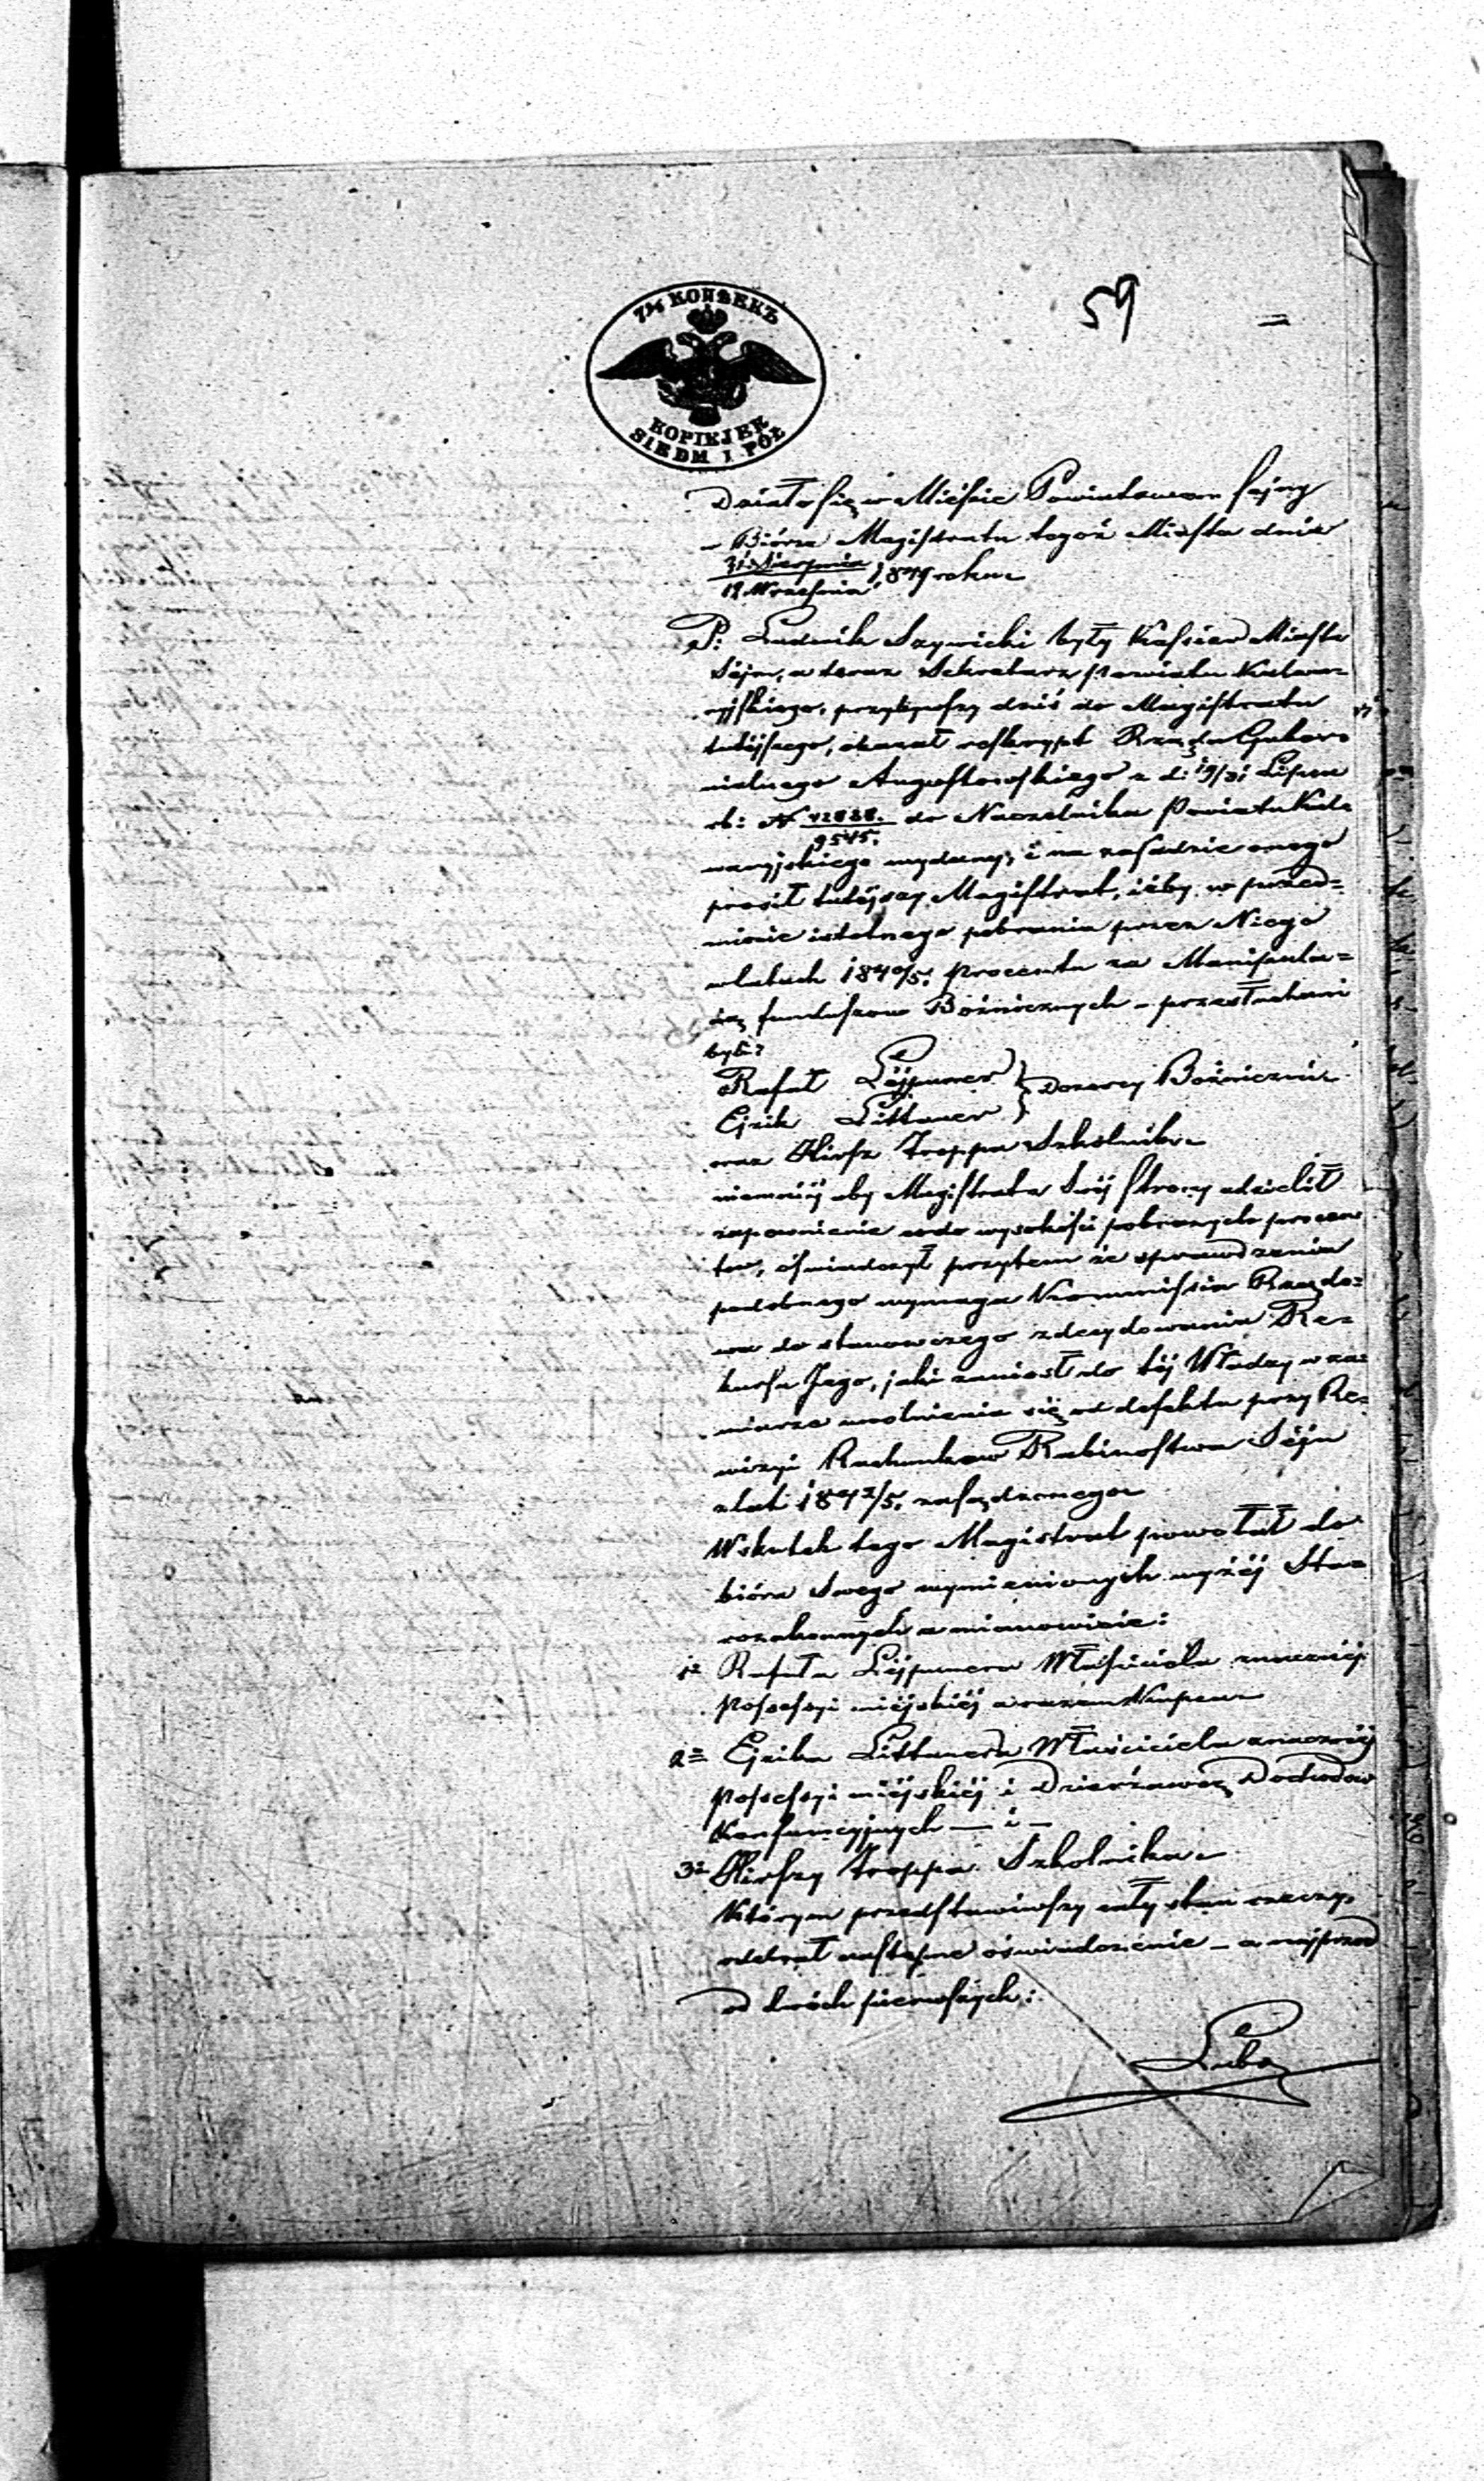 7½ КОПѢЕКЪ
KOPIEJEK
SIEDM I PÓŁ
59
Działo się w Mieście Powiatowem Sejny
w Biórze Magistratu tegoż Miasta dnia
31 Sierpnia
12 Września 1849 roku
P. Ludwik Szywicki były Kassier Miasta
Sejn, a teraz Sekretarz Powiatu Kalwa-
ryjskiego, przybywszy dziś do Magistratu
tutéjszego, okazał reskrypt Rządu Guber-
nialnego Augustowskiego z d: 19/31 Lipca
rb: N 42838.
9545. do Naczelnika Powiatu Kal-
waryjskiego wydany, i na zasadzie onego
prosił tutéjszy Magistrat, iżby w przed-
miocie istotnego pobrania przez Niego
w latach 1840/5. procentu za Manipula-
cię funduszow Bóżnicznych – przesłuchani
byli:
Rafał Léjpuner
Ejzik Littauer } Dozorcy Bóżniczni
oraz Hirsz Troppa Szkolnik
niemniéj aby Magistrat z Swéj strony udzielił
zapewnienie co do wysokości pobranych procen-
tow, oświadczył przytem że sprawdzenia
podobnego wymaga Kommissia Rządo-
wa do stanowczego zdecydowania Re-
kursu Jego, jaki zaniósł do téj Władzy w za-
miarze uwolnienia się od defektu przy Re-
wizyi Rachunkow Rabinostwa Séjn
z lat 1842/5. zasądzonego
W skutek tego Magistrat powołał do
bióra Swego wymienionych wyżéj Sta-
rozakonnych a mianowicie:
1º Rafała Léjpunera Właściciela znacznéj
Possessyi miéjskiéj a razem Kupca
2º Ejzika Littauera Właściciela znacznéj
Possessyi miéjskiéj i Dzierżawcę Dochodow
Konsumcyjnych — i —
3º Hirszy Troppa Szkolnika
Którym przedstawiwszy cały stan rzeczy,
odebrał następne oświadczenie – a najprzod
od dwóch pierwszych: